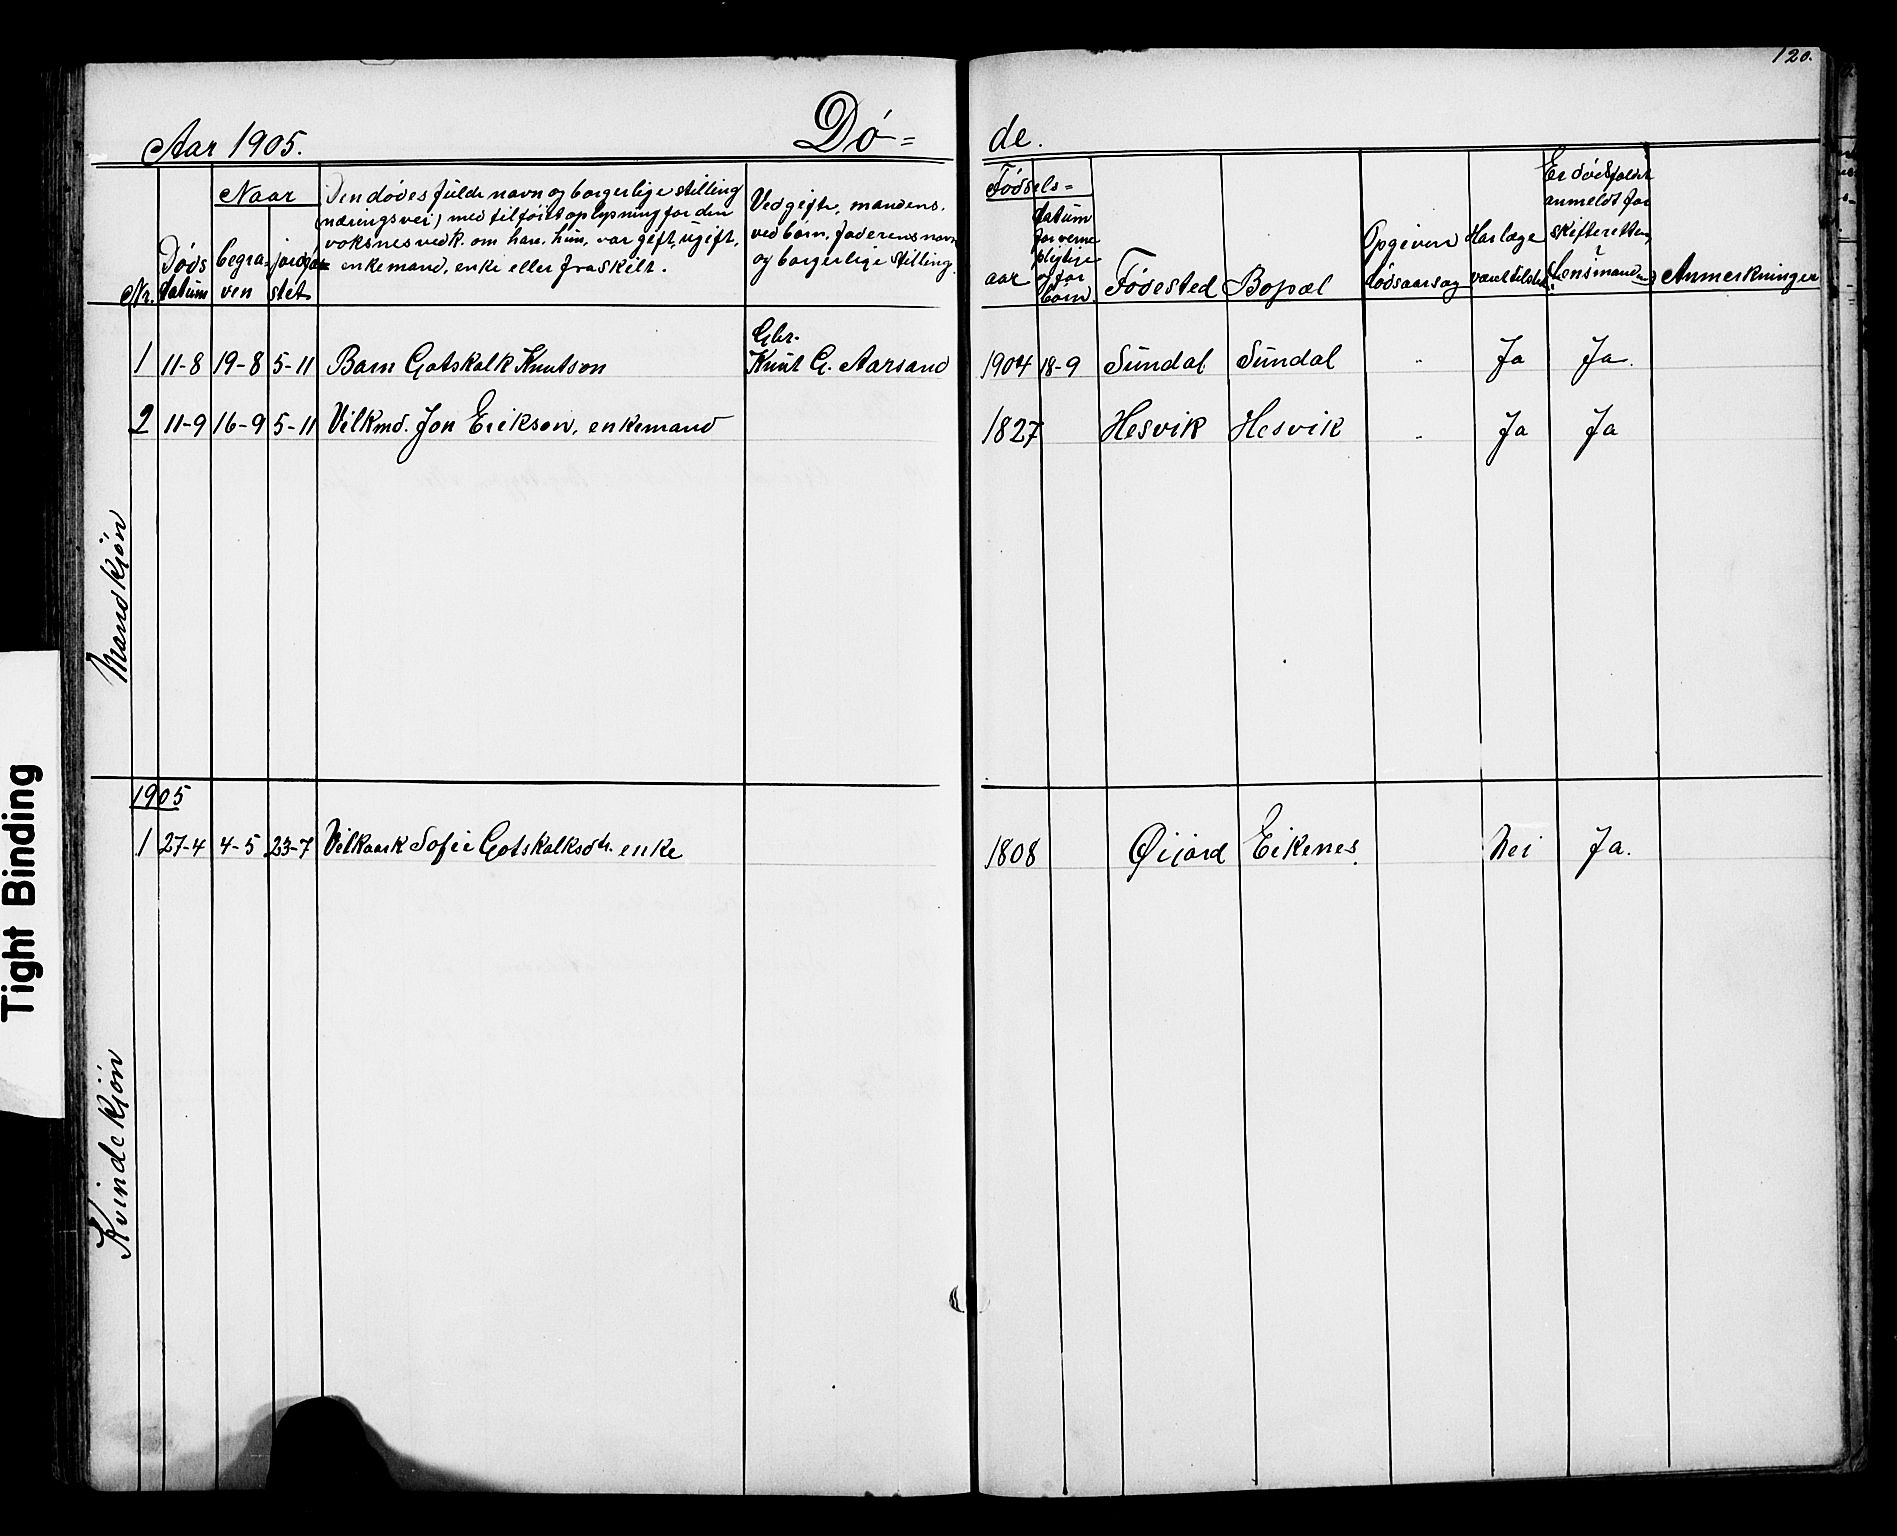 120.
Aar 1905. Dø=de.
Nr.
Døds datum
Naar
begra=ven
jordfæ=stet
Den dødes fulde navn og borgerlige stilling
(næringsvei) med tilføiet oplysning for den
voksnes vedk. om han, hun, var gift, ugift,
enkemand, enke eller fraskilt.
Ved gifte, mandens,
ved børn, faderens navn
og borgerlige stilling.
Fødsels=
aar
datum
for verne
pligtige
og for
børn.
Fødested
Bopæl
Opgiven
dødsaarsag
Har læge
været tilstede
Er dødsfaldet
anmeldt for
skifteretten,
(Lensmanden)
?
Anmerkninger
Mandkjøn
Gbr.
1 11-8 19-8 5-11 Barn Gotskalk Knutson Knut G. Aarsand 1904 18-9 Sundal Sundal " Ja Ja.
2 11-9 16-9 5-11 Vilkmd. Jon Erikson, enkemand 1827 Hesvik Hesvik " Ja Ja
Kvindekjøn
1905
1 27-4 4-5 23-7 Vilkaark Sofie Gotskalksdtr. enke 1808 Øijord Eikenes. Nei Ja.
Tight Binding